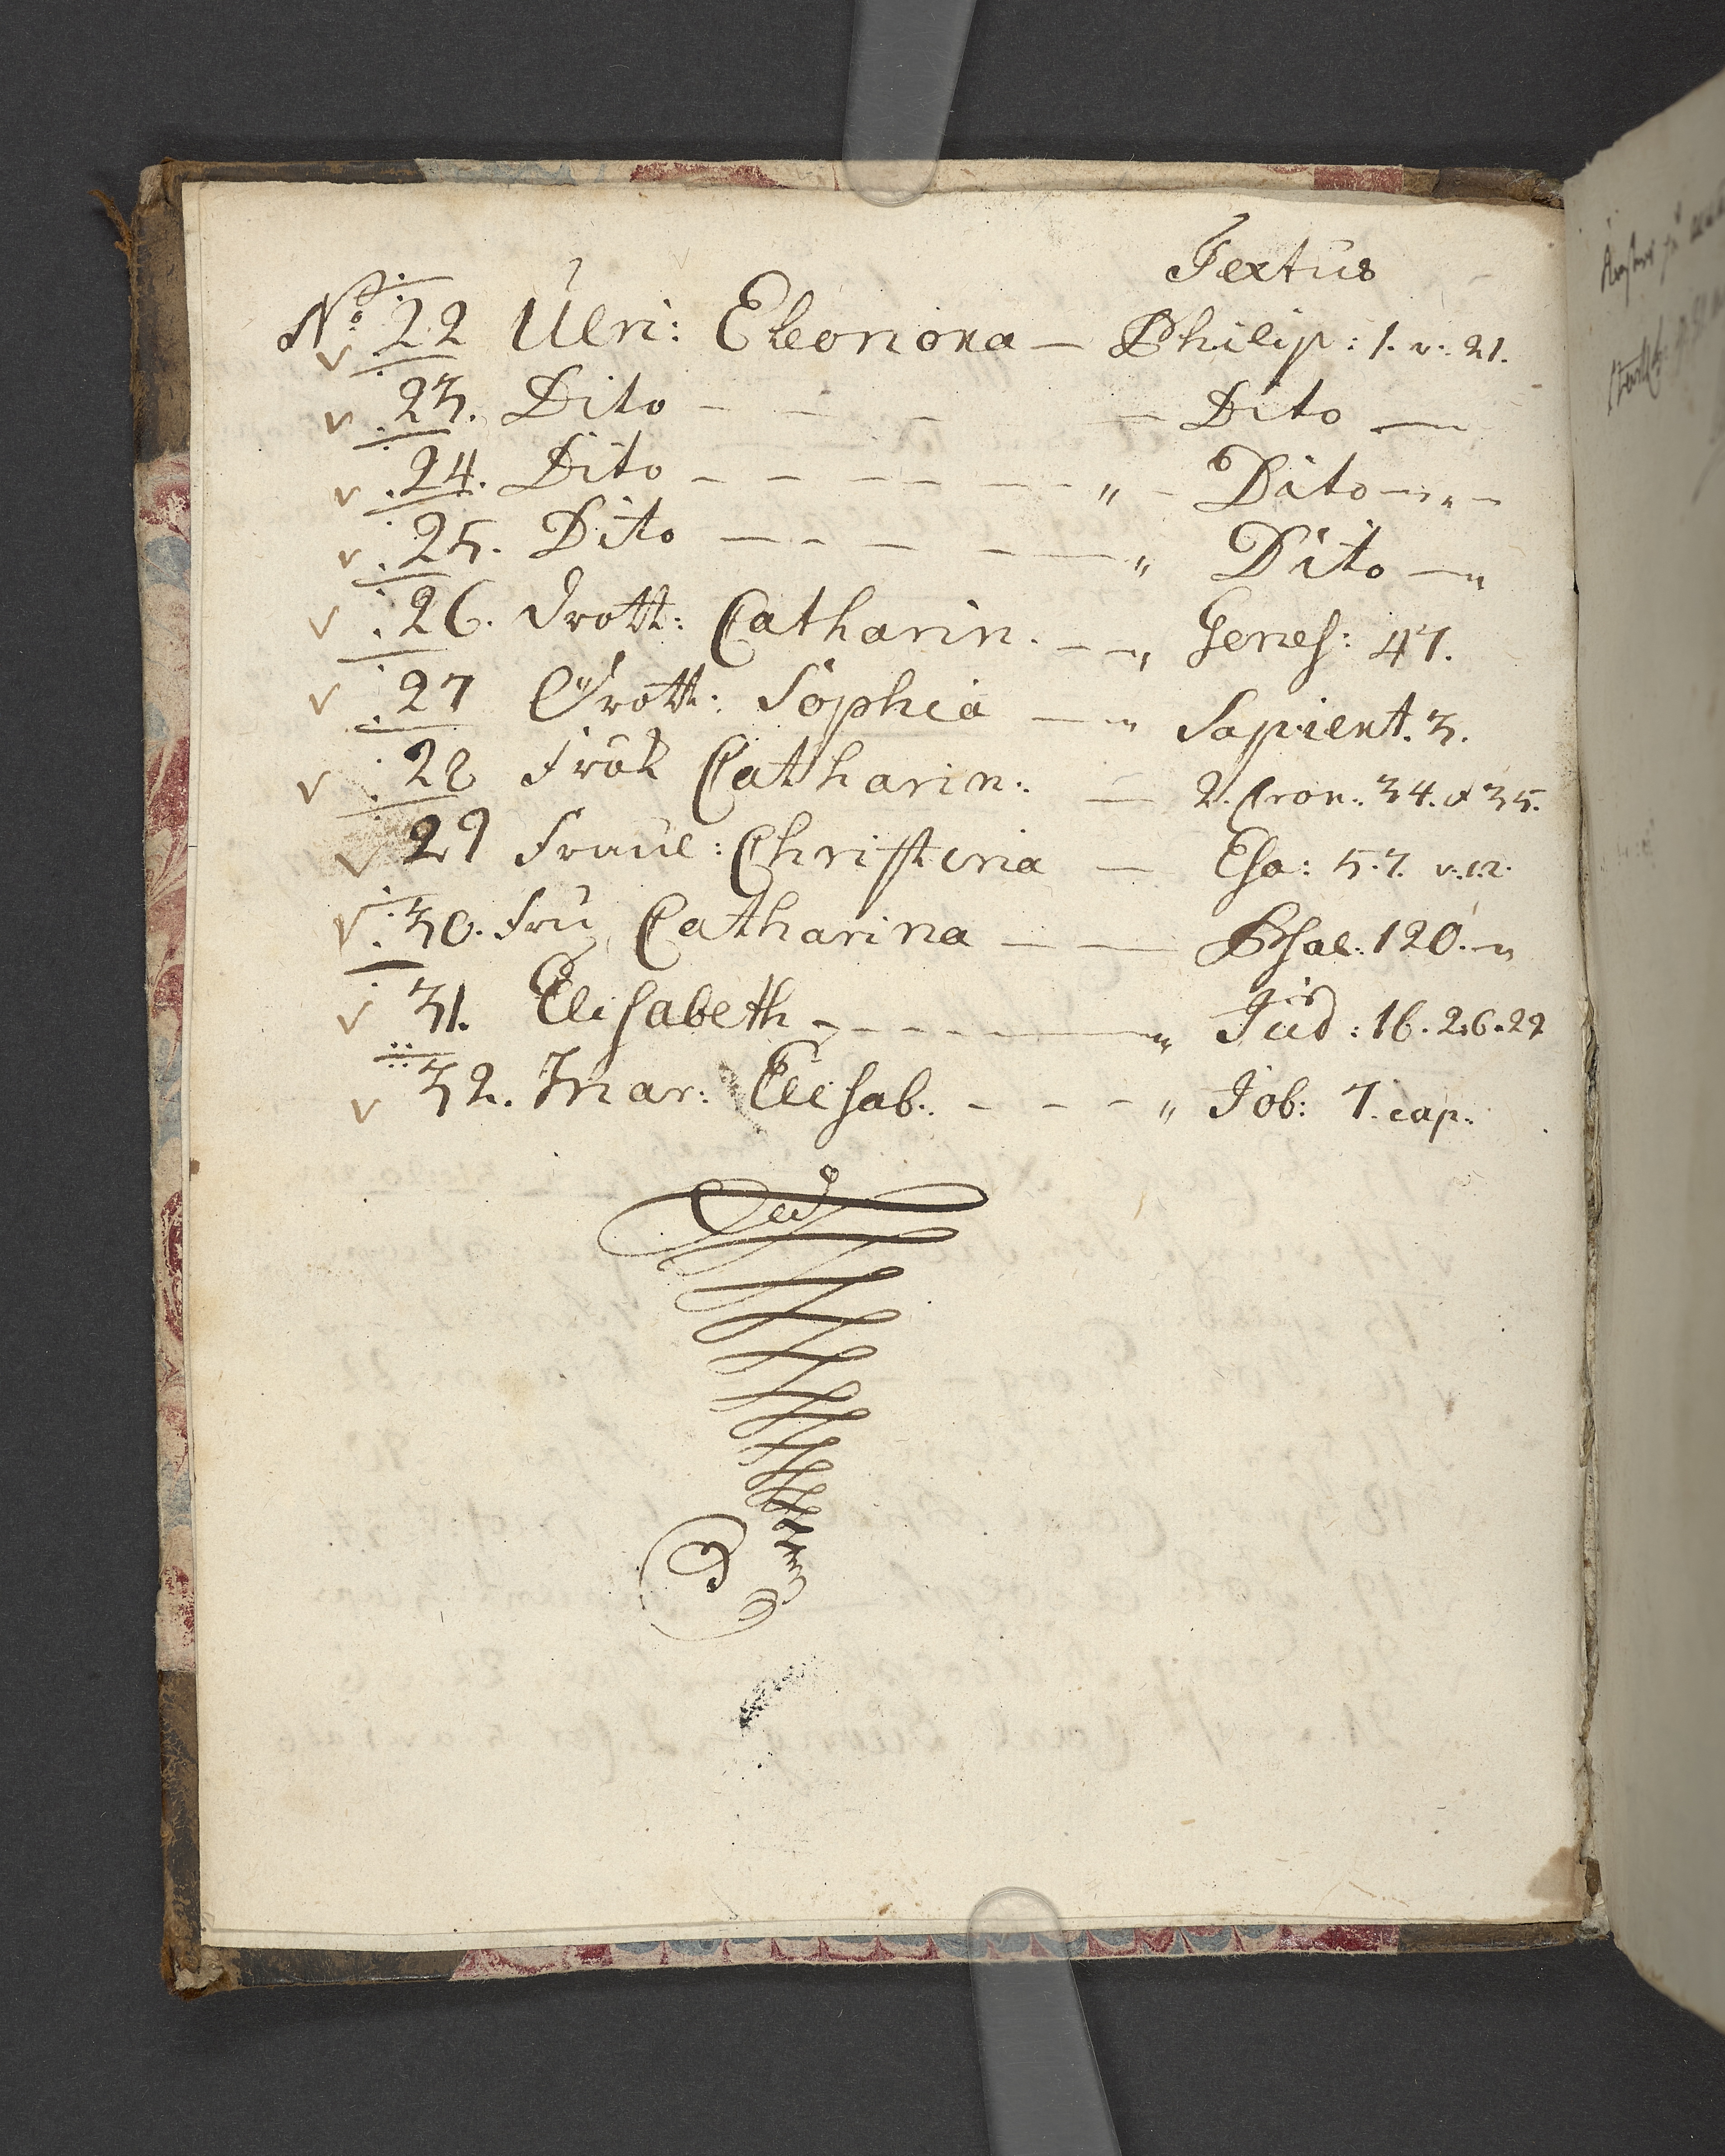 Textus
No 22 Ulri: Eleonora — Philip: 1. v: 21.
23. Dito — Dito —
24. Dito — — — — — — „ — Dito — „ —
25. Dito — — — — — „ Dito — „
26. Drott: Catharin. — — „ Genes: 47.
27 Drott: Sophia — „ Sapient. 3.
28 Frök Catharin: — 2. Cron: 34. & 35.
29 Fraul: Christina — Esa: 57. v. 12.
30. Fru Catharina — — Psal: 120. —
31. Elisabeth — — — — — „ Jud: 16. 26. 29
32. Mar: Elisab. — — — „ Job: 7. cap.